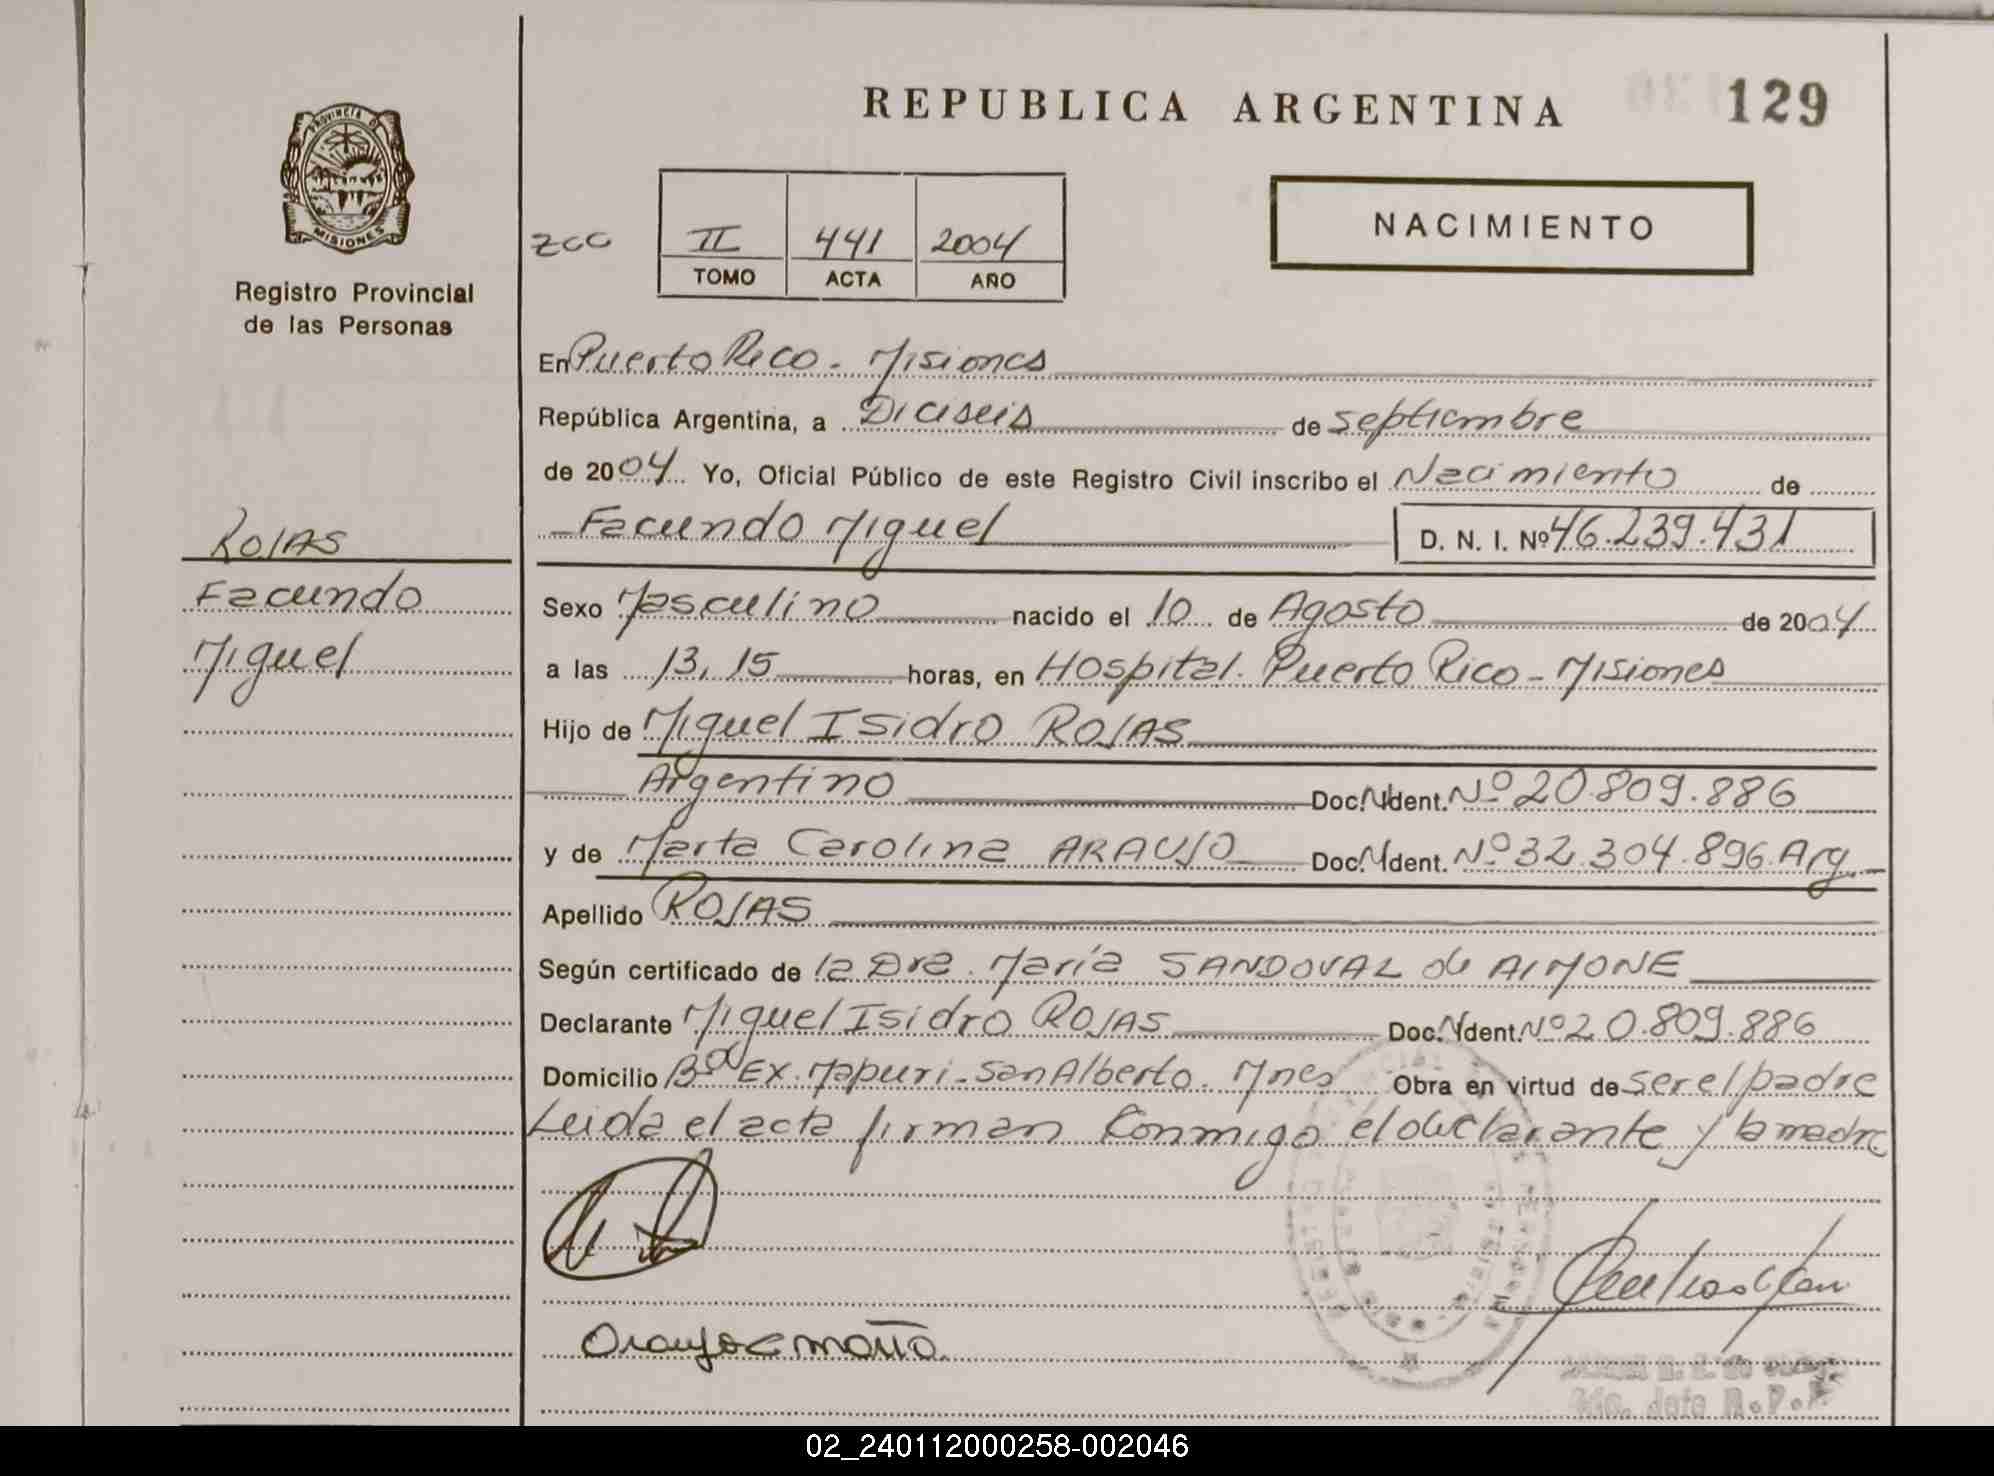 REPUBLICA ARGENTINA
129
PROVINCIA DE
MISIONES
Registro Provincial
de las Personas
zcc
II 441 2004
TOMO ACTA AÑO
NACIMIENTO
En Puerto Rico - Misiones
República Argentina, a Diciseis de septiembre
de 2004 Yo, Oficial Público de este Registro Civil inscribo el Nacimiento de
Facundo Miguel D. N. I. Nº 46.239.431
ROJAS
Facundo
Miguel
Sexo Masculino nacido el 10 de Agosto de 2004
a las 13,15 horas, en Hospital. Puerto Rico - Misiones
Hijo de Miguel Isidro ROJAS
Argentino Doc. N Ident. Nº 20.809.886
y de Marta Carolina ARAUJO Doc. N Ident. Nº 32.304.896. Arg.
Apellido ROJAS
Según certificado de la Dra. María SANDOVAL de AIMONE
Declarante Miguel Isidro ROJAS Doc. N Ident. Nº 20.809.886
Domicilio Bº Ex. Mapuri - San Alberto. Mnes Obra en virtud de ser el padre
Leida el acta firman Conmigo el declarante y la madre
02_240112000258-002046